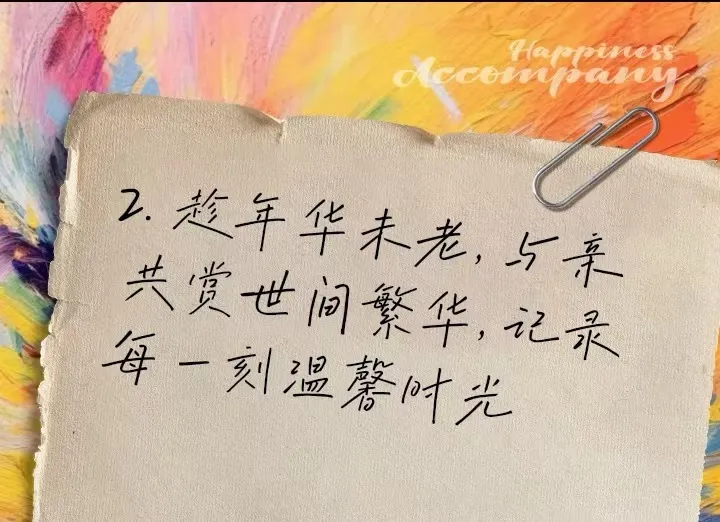 Happiness
Accompany
2. 趁年华未老, 与亲
共赏世间繁华, 记录
每一刻温馨时光